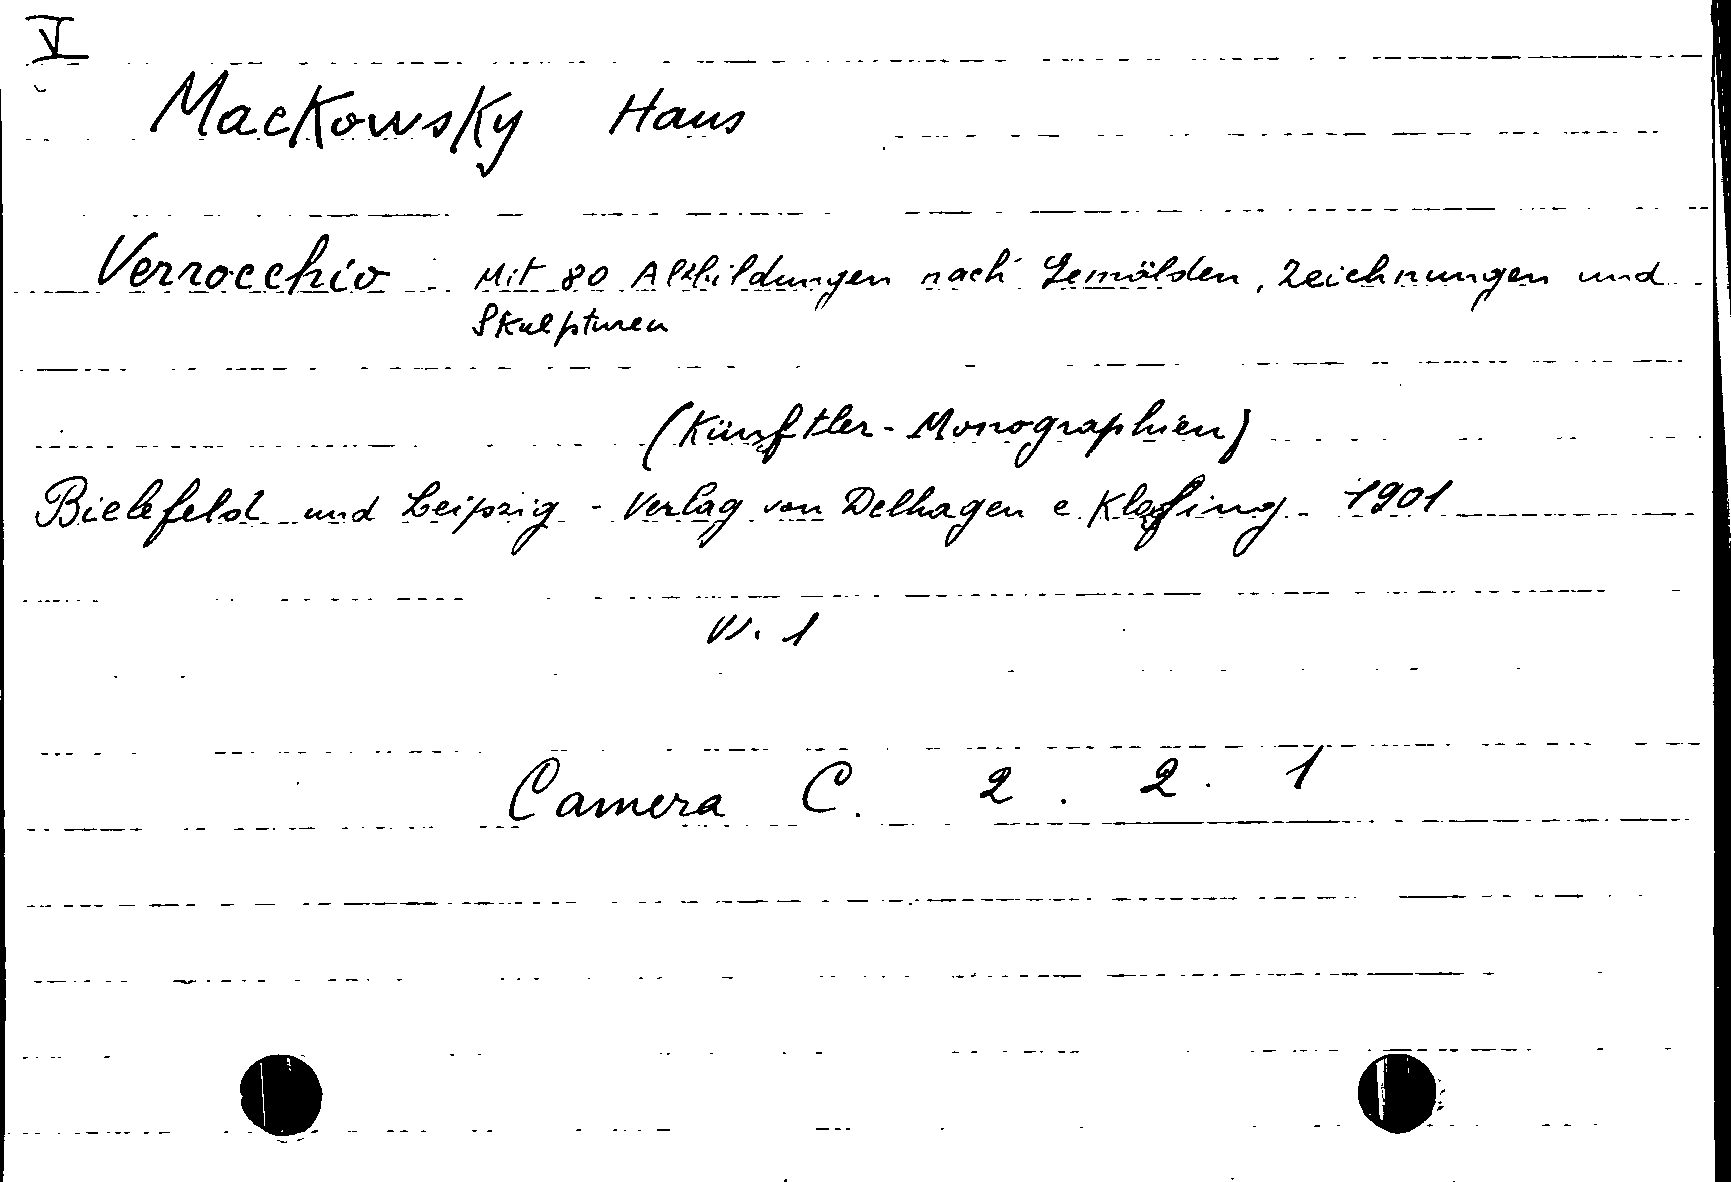 V
Mackowsky Haus
Verrocchio Mit 80 Abbildungen nach Gemälden, Zeichnungen und
Skulpturen
(Künstler-Monographien)
Bielefeld und Leipzig - Verlag von Delhagen e Klasing 1901
V. 1
Camera C. 2. 2. 1